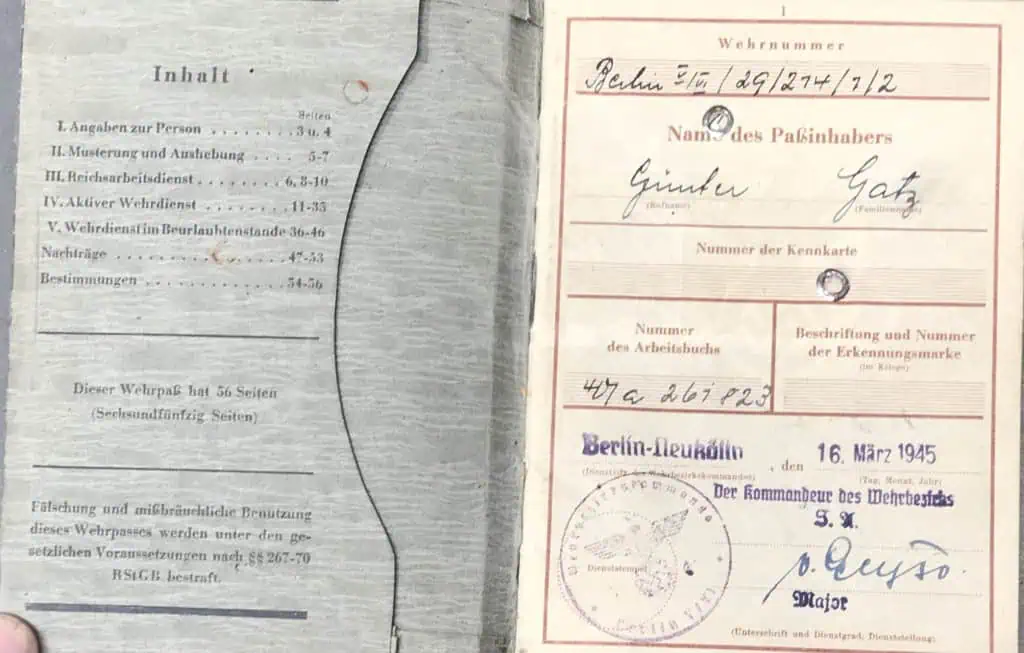 Inhalt
Seiten
I. Angaben zur Person . . . . . . . . 3 u. 4
II. Musterung und Aushebung . . . . 5-7
III. Reichsarbeitsdienst . . . . . . . . 6, 8-10
IV. Aktiver Wehrdienst . . . . . . . . 11-35
V. Wehrdienst im Beurlaubtenstande 36-46
Nachträge . . . . . . . . . . . . . . . 47-53
Bestimmungen . . . . . . . . . . . . 54-56
Dieser Wehrpaß hat 56 Seiten
(Sechsundfünfzig Seiten)
Fälschung und mißbräuchliche Benutzung
dieses Wehrpasses werden unter den ge-
setzlichen Voraussetzungen nach §§ 267-70
RStGB bestraft.
1
Wehrnummer
Berlin V/VI/29/274/7/2
Name des Paßinhabers
Günter Gatz
(Rufname) (Familienname)
Nummer der Kennkarte
Nummer
des Arbeitsbuchs
Beschriftung und Nummer
der Erkennungsmarke
(im Kriege)
47a 261823
Berlin-Neukölln, den 16. März 1945
(Tag, Monat, Jahr)
Der Kommandeur des Wehrbezirks
Dienststempel
Major
(Unterschrift und Dienstgrad, Dienststellung)